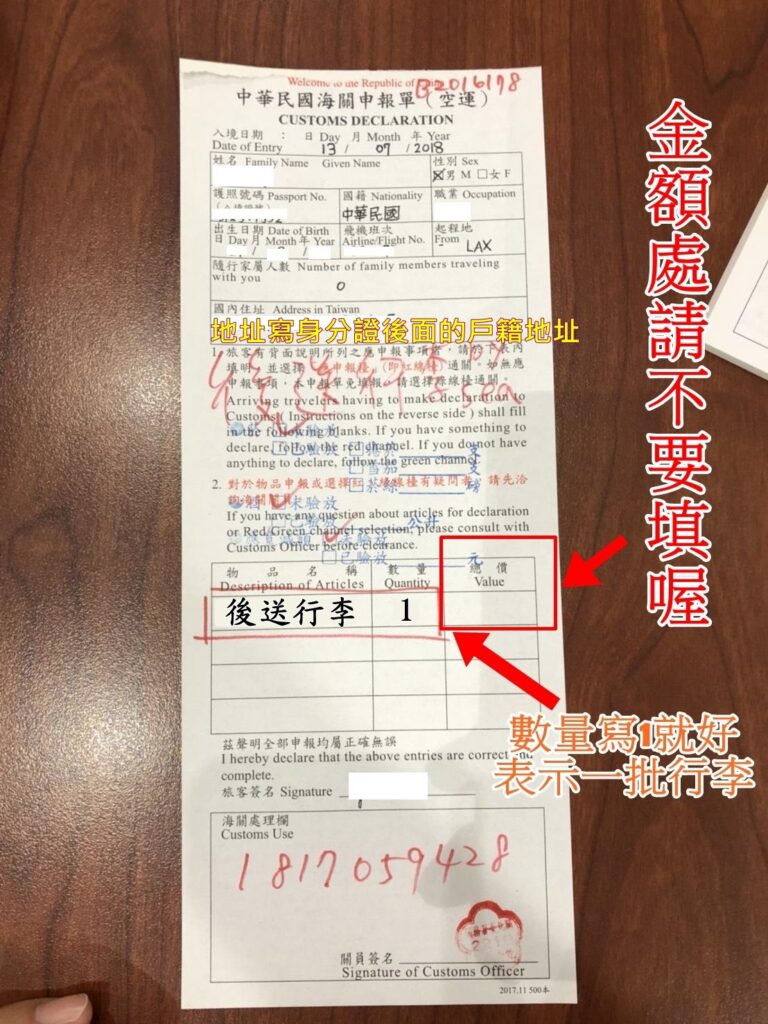 Welcome to the Republic of
B2016178
中華民國海關申報單（空運）
CUSTOMS DECLARATION
入境日期 ： 日 Day 月 Month 年 Year
Date of Entry 13 / 07 / 2018
姓名 Family Name Given Name
性別 Sex
男 M 女 F
護照號碼 Passport No.
國籍 Nationality
職業 Occupation
中華民國
出生日期 Date of Birth
飛機班次
起程地
日 Day 月 Month 年 Year
Airline/Flight No.
From LAX
隨行家屬人數 Number of family members traveling
with you
0
國內住址 Address in Taiwan
地址寫身分證後面的戶籍地址
1. 旅客有背面說明所列之應申報事項者，請於下表內
填明，並選擇 申報檯（即紅線檯）通關。如無應
申報事項，本申報單免填報，請選擇綠線檯通關。
Arriving travelers having to make declaration to
Customs ( Instructions on the reverse side ) shall fill
in the following blanks. If you have something to
declare, follow the red channel. If you do not have
anything to declare, follow the green channel.
2. 對於物品申報或選擇紅、綠線檯有疑問者，請先洽
詢海關關員
If you have any question about articles for declaration
or Red/Green channel selection, please consult with
Customs Officer before clearance.
後送行李
未驗放
已驗放
雪茄
公升
未驗放
已驗放
元
物品名稱
數量
總價
Description of Articles
Quantity
Value
後送行李
1
茲聲明全部申報均屬正確無誤
I hereby declare that the above entries are correct and
complete.
旅客簽名 Signature
海關處理欄
Customs Use
1817059428
關員簽名
Signature of Customs Officer
2017.11 500本
金額處請不要填喔
數量寫1就好
表示一批行李